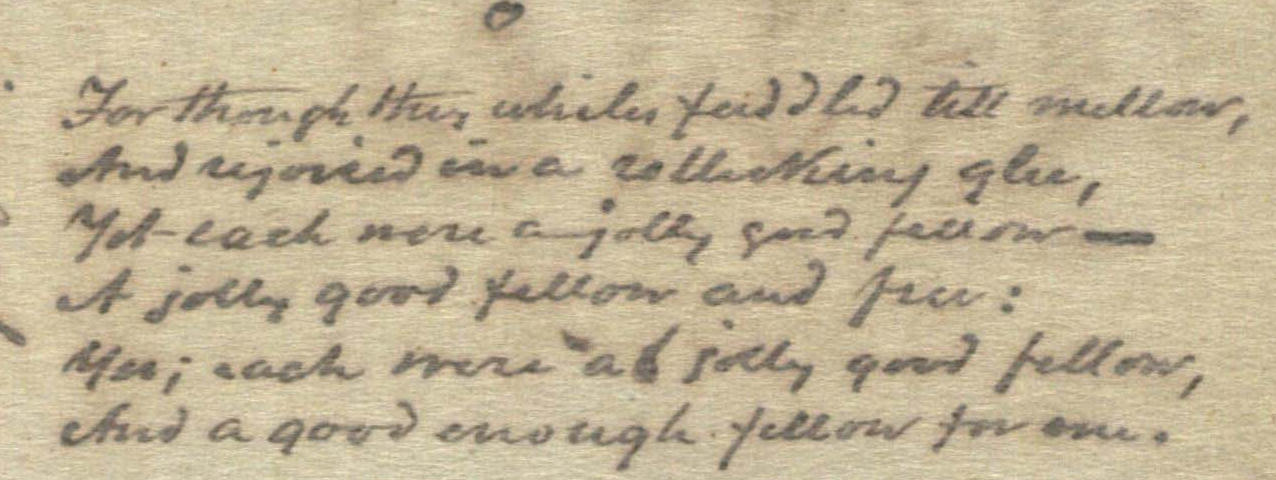 For though they whiles fuddled till mellow,
And rejoiced in a rollicking glee,
Yet each were a jolly good fellow —
A jolly good fellow and free:
Yes; each were a jolly good fellow,
And a good enough fellow for me.